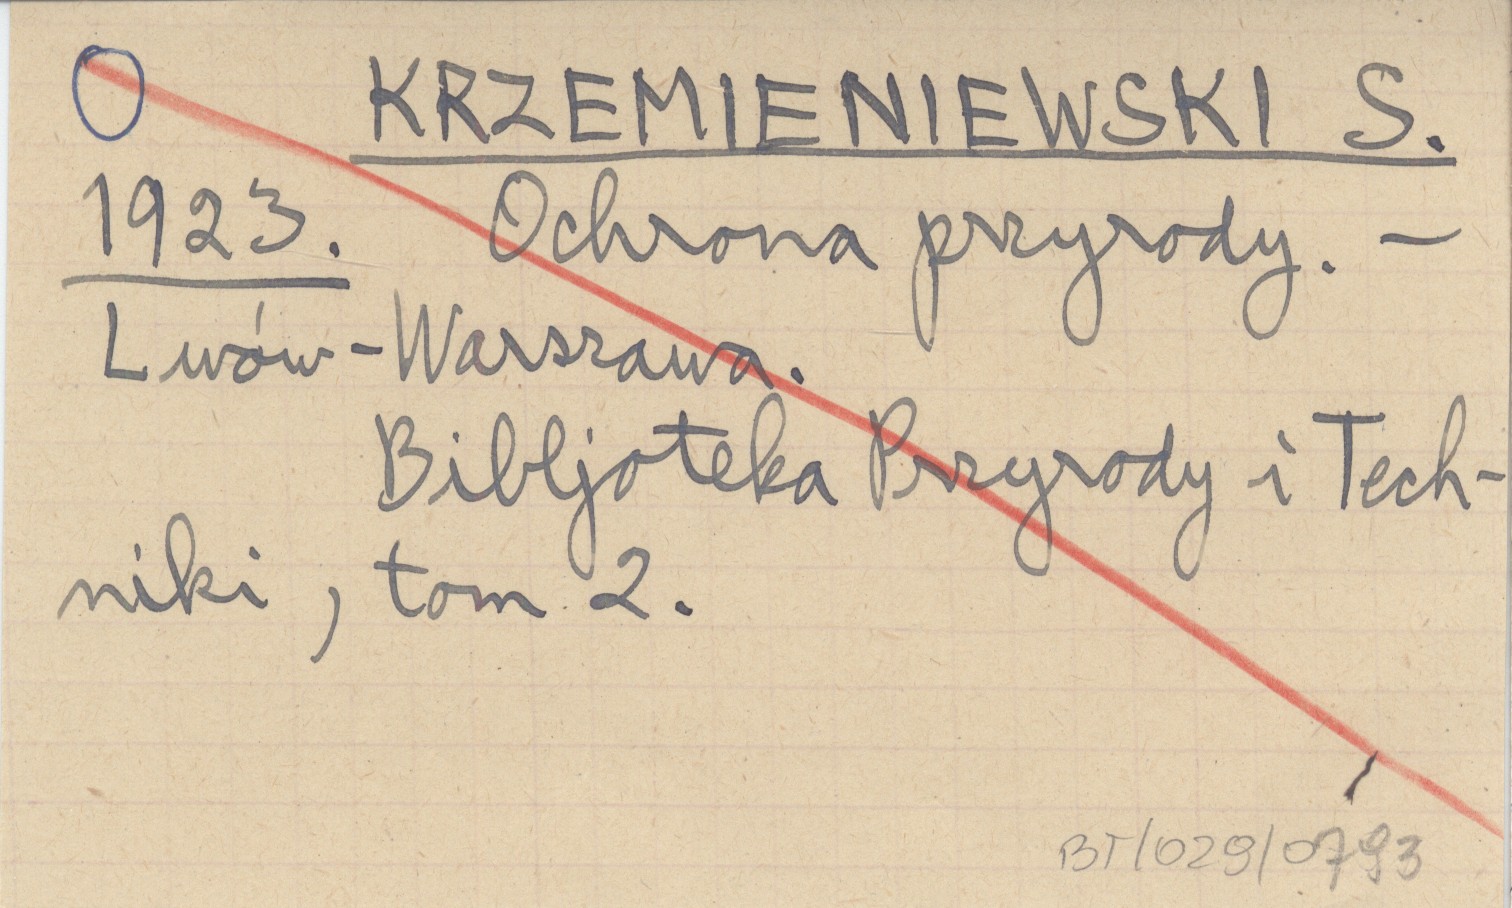 KRZEMIENIEWSKI S.
1923. Ochrona przyrody. –
Lwów-Warszawa.
Bibljoteka Przyrody i Tech-
niki, tom 2.
BT/029/0793